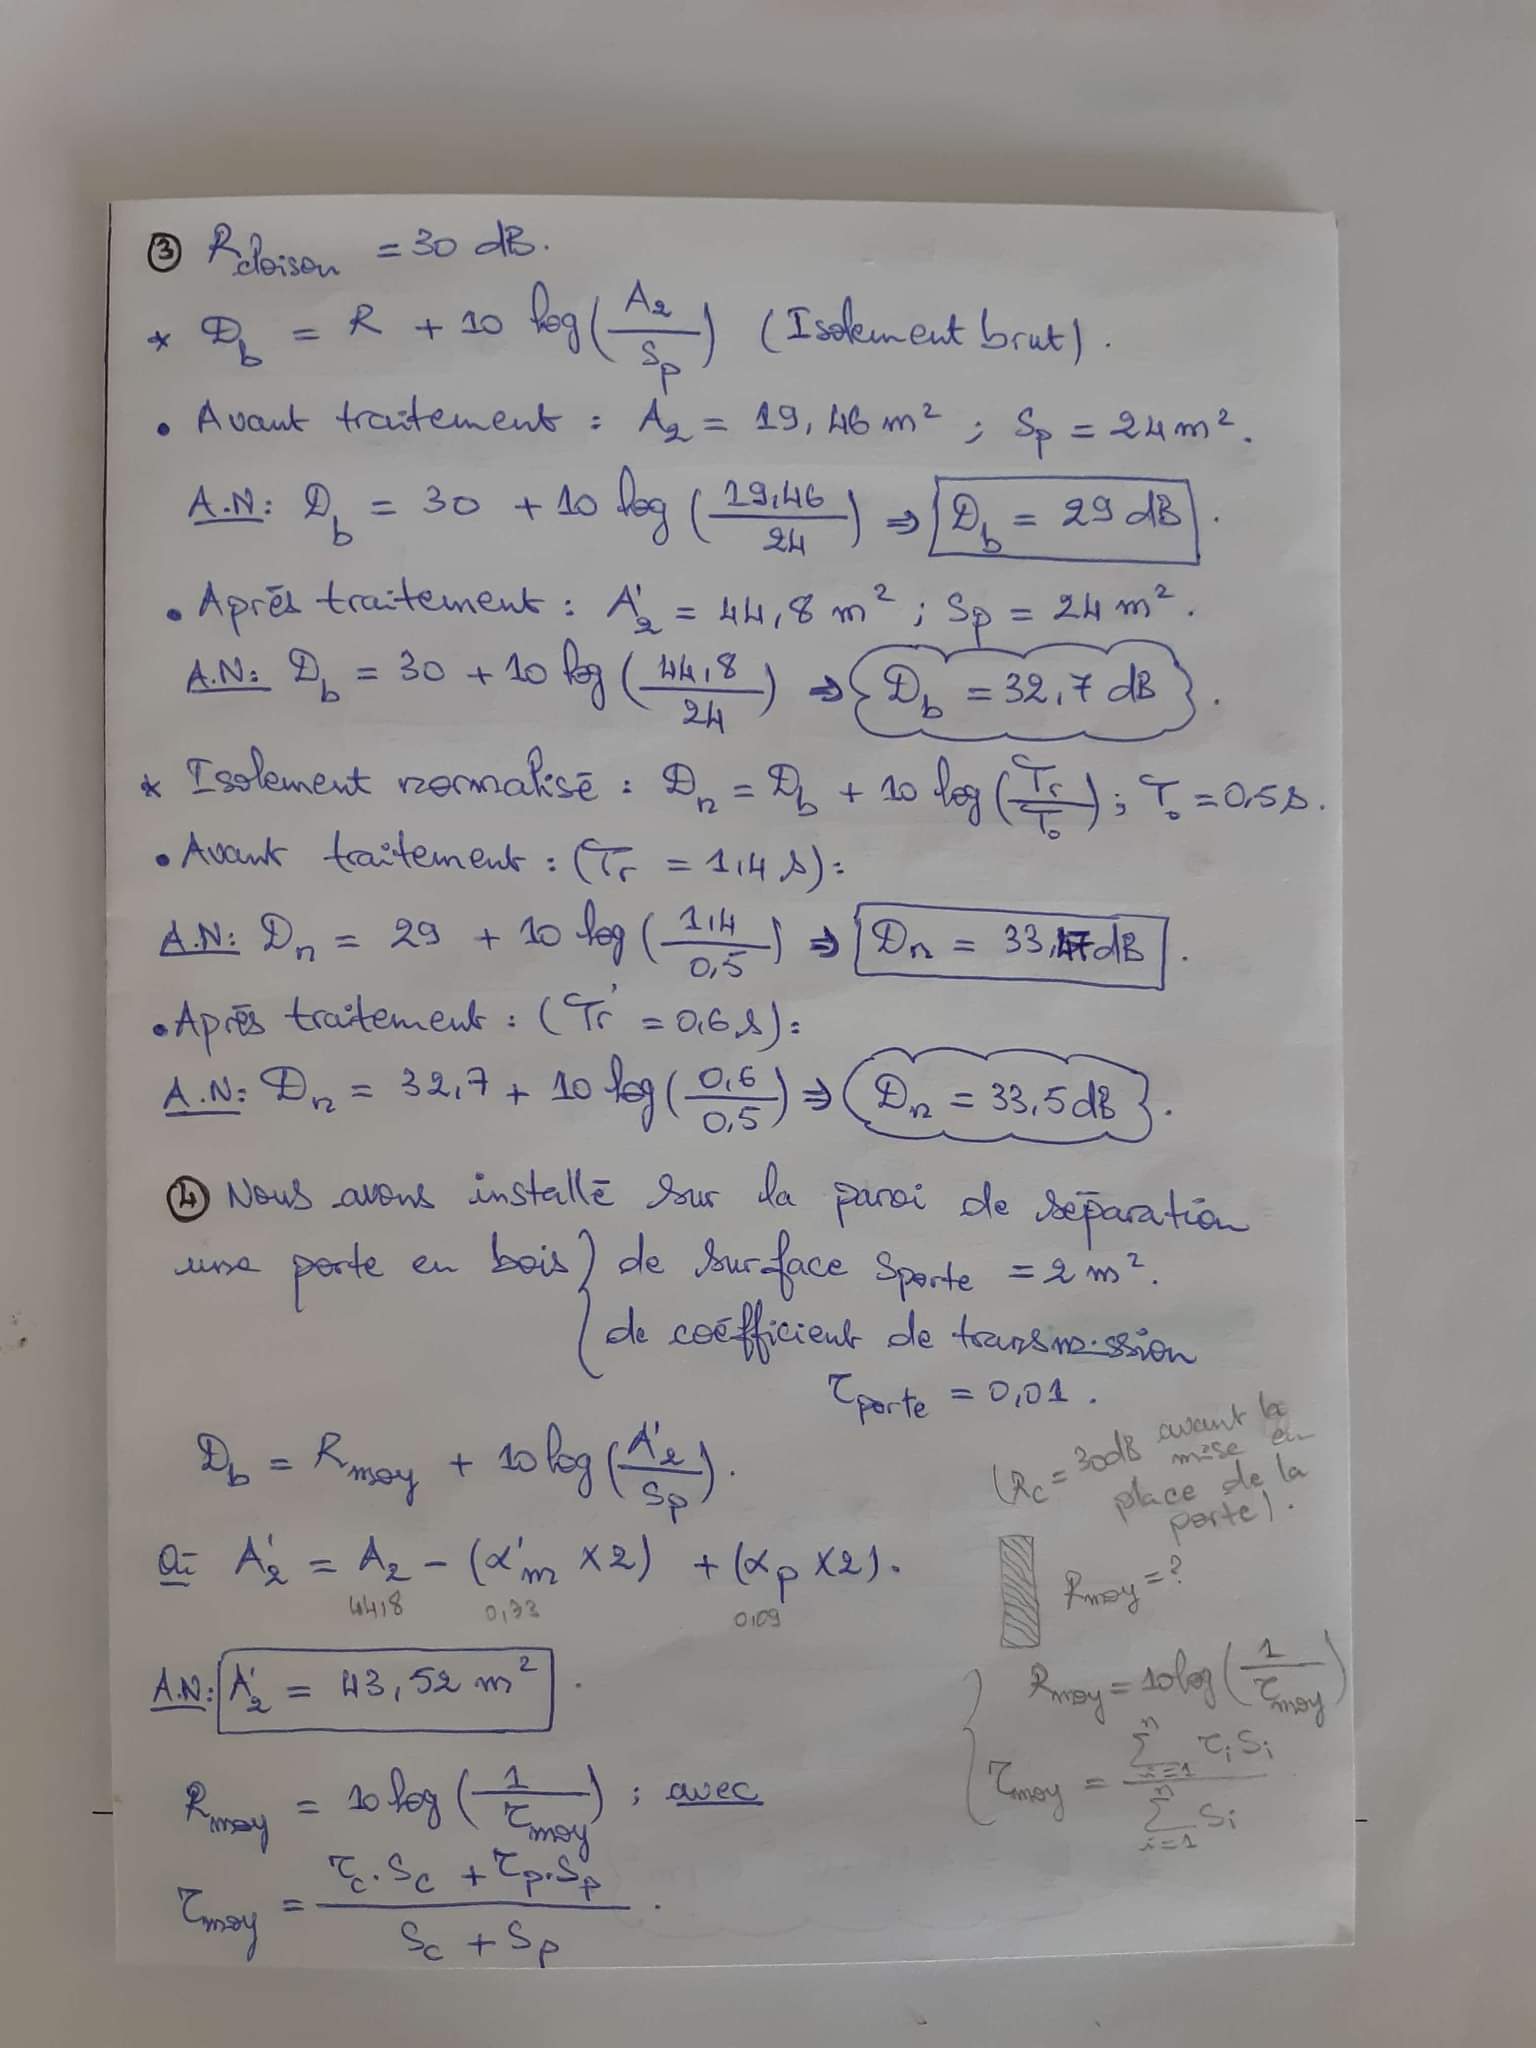 ③ R cloison = 30 dB.
* D_b = R + 10 log(A_2 / S_p) (Isolement brut).
• Avant traitement : A_2 = 19,46 m² ; S_p = 24 m².
A.N: D_b = 30 + 10 log(19,46 / 24) ⇒ D_b = 29 dB.
• Après traitement : A'_2 = 44,8 m² ; S_p = 24 m².
A.N: D_b = 30 + 10 log(44,8 / 24) ⇒ D_b = 32,7 dB.
* Isolement normalisé : D_n = D_b + 10 log(T_r / T_0) ; T_0 = 0,5 s.
• Avant traitement : (T_r = 1,4 s) :
A.N: D_n = 29 + 10 log(1,4 / 0,5) ⇒ D_n = 33,47 dB.
• Après traitement : (T_r' = 0,6 s) :
A.N: D_n = 32,7 + 10 log(0,6 / 0,5) ⇒ D_n = 33,5 dB.
④ Nous avons installé sur la paroi de séparation
une porte en bois } de surface S_porte = 2 m².
{ de coéfficient de transmission
τ_porte = 0,01.
D_b = R_moy + 10 log(A'_2 / S_p).
Où A'_2 = A_2 - (α'_m × 2) + (α_p × 2).
44,8 0,73 0,09
A.N: A'_2 = 43,52 m².
R_moy = 10 log(1 / τ_moy) ; avec
τ_moy = (τ_c . S_c + τ_p . S_p) / (S_c + S_p).
(R_c = 30dB avant la
mise en
place de la
porte).
R_moy = ?
R_moy = 10 log(1 / τ_moy)
τ_moy = Σ_{i=1}^{n} τ_i S_i / Σ_{i=1}^{n} S_i